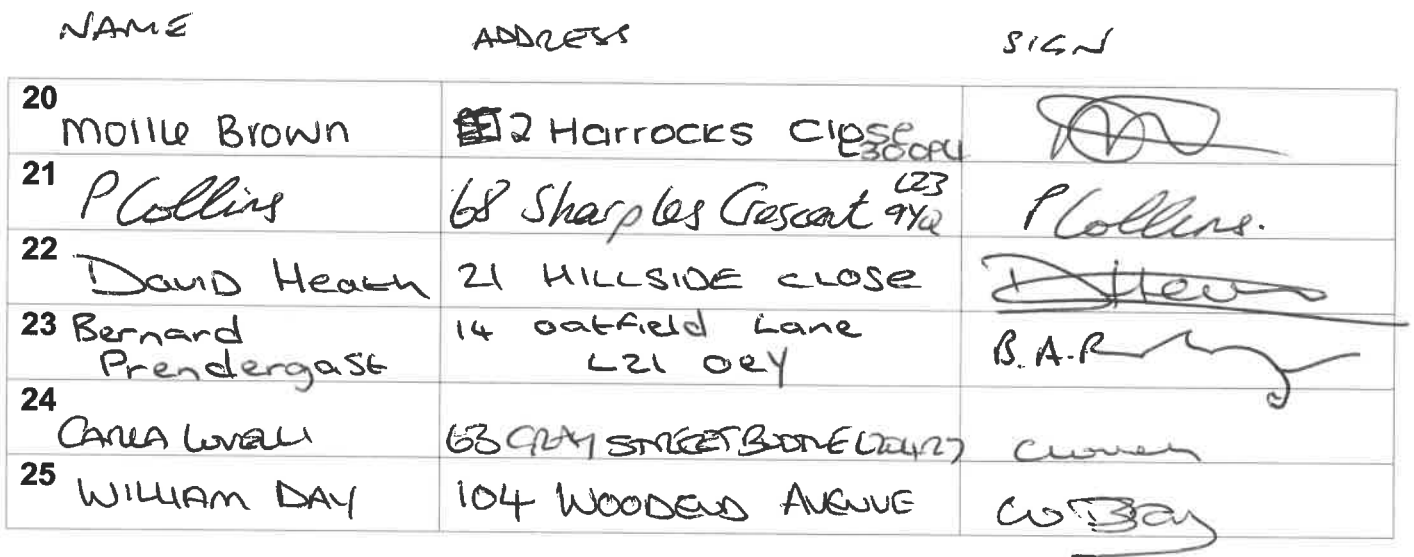 NAME ADDRESS SIGN
20 Mollie Brown 2 Harrocks Close
L30 0PU
21 P Collins 68 Sharples Crescent L23 9YQ P Collins.
22 David Heath 21 HILLSIDE CLOSE DHeath
23 Bernard Prendergast 14 Oatfield Lane
L21 0EY B.A.P
24 CARLA 63 GRAY STREET BOOTLE
25 WILLIAM DAY 104 WOODEND AVENUE W Day